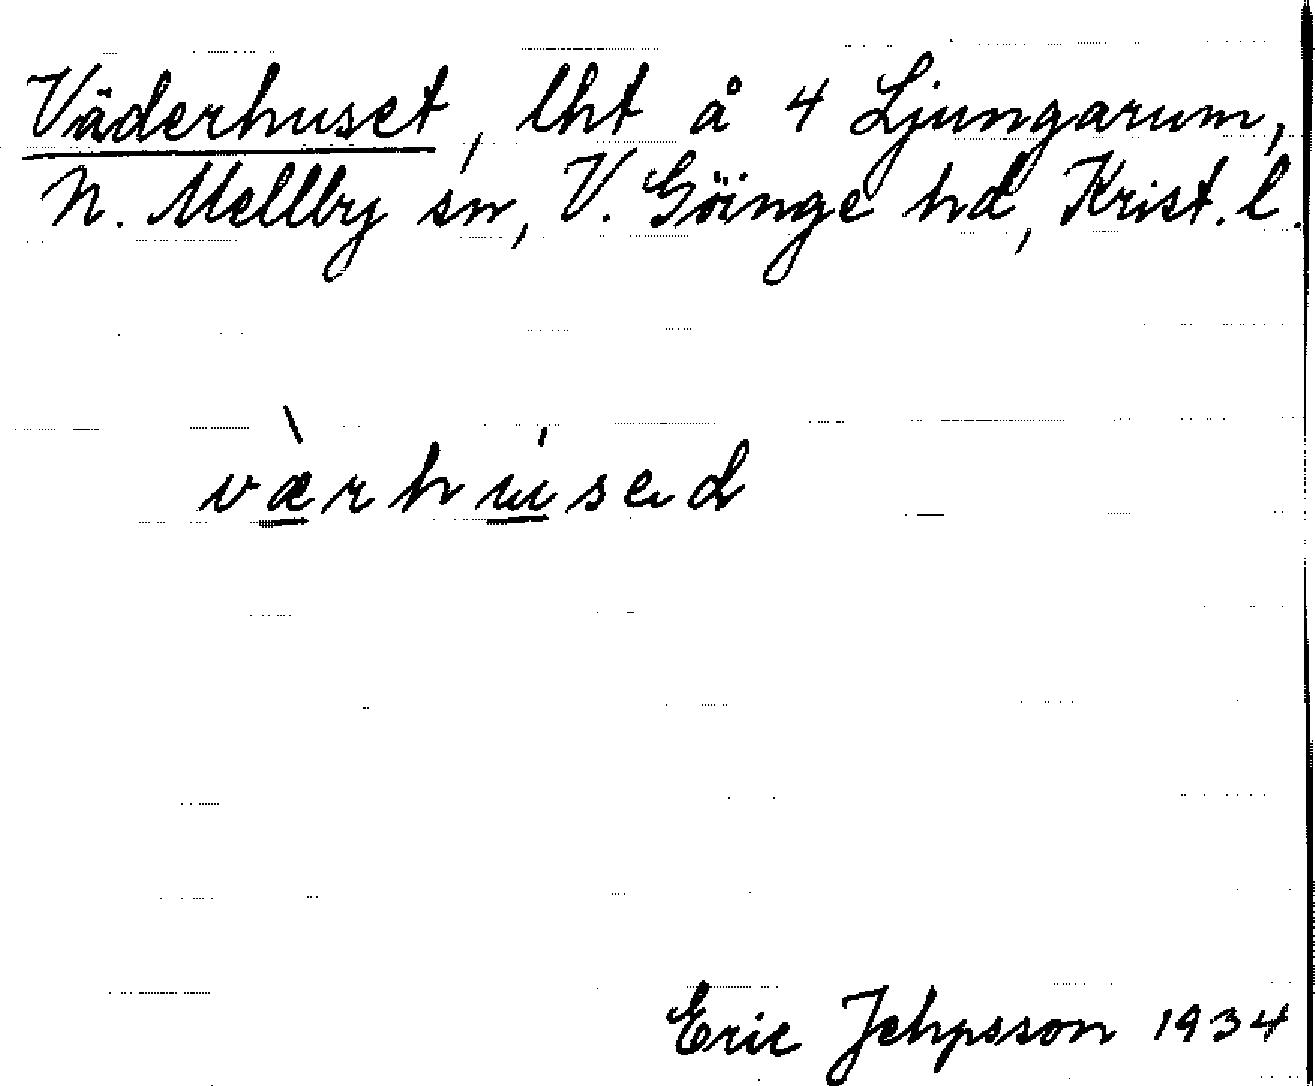 Väderhuset, lht å 4 Ljungarum,
N. Mellby sn, V. Göinge hd, Krist. l.
væ̀rhúsed
Eric Jehpsson 1934